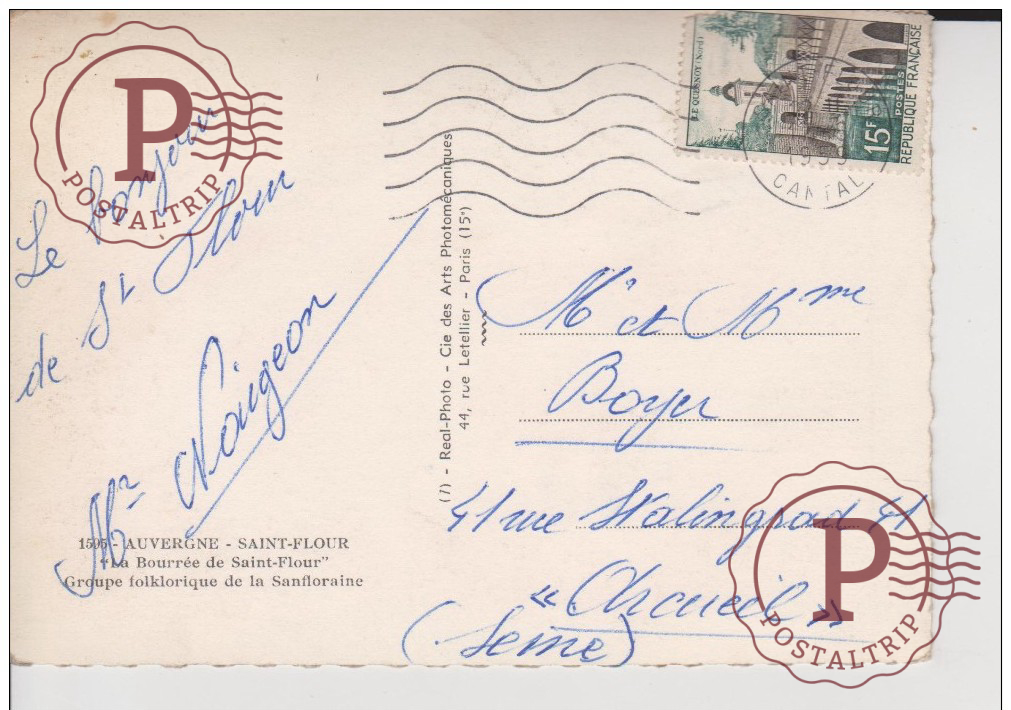 Le bonjour
de St Flour
Mr Voigeon
1505 - AUVERGNE - SAINT-FLOUR
"La Bourrée de Saint-Flour"
Groupe folklorique de la Sanfloraine
(7) - Real-Photo - Cie des Arts Photomécaniques
44, rue Letellier - Paris (15e)
LE QUESNOY (Nord)
15F
POSTES
REPUBLIQUE FRANÇAISE
CANTAL
Mr et Mme
Boyer
41 rue Stalingrad 41
« Arcueil »
(Seine)
POSTALTRIP
POSTALTRIP